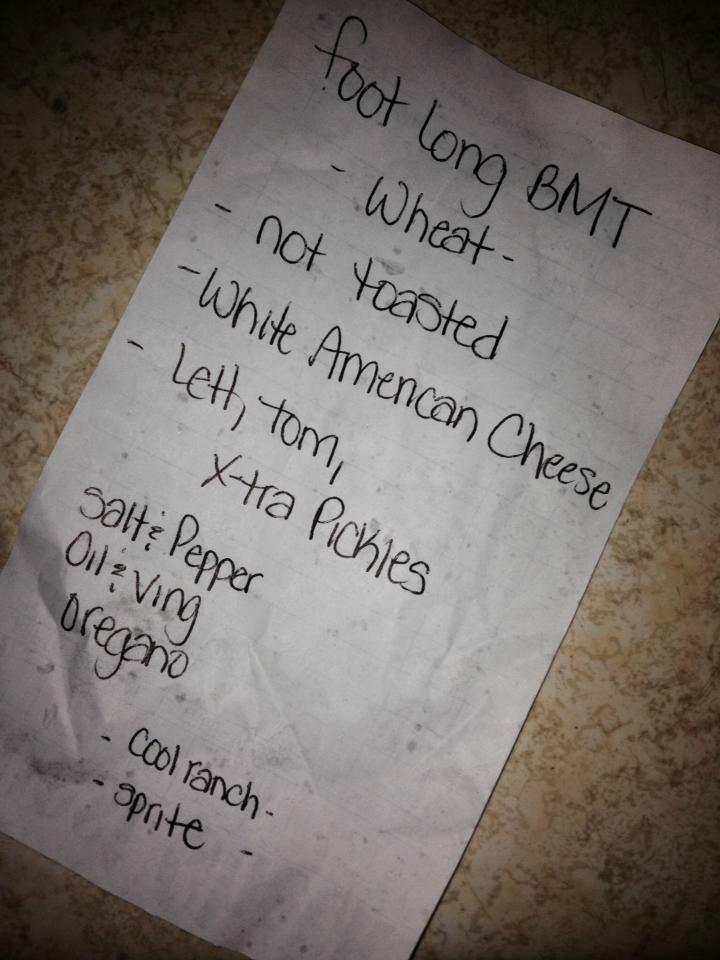 foot long BMT
- Wheat -
- not toasted
- White American Cheese
- Lett, tom,
X-tra Pickles
Salt & Pepper
Oil & Ving
Oregano
- Cool ranch -
- sprite -